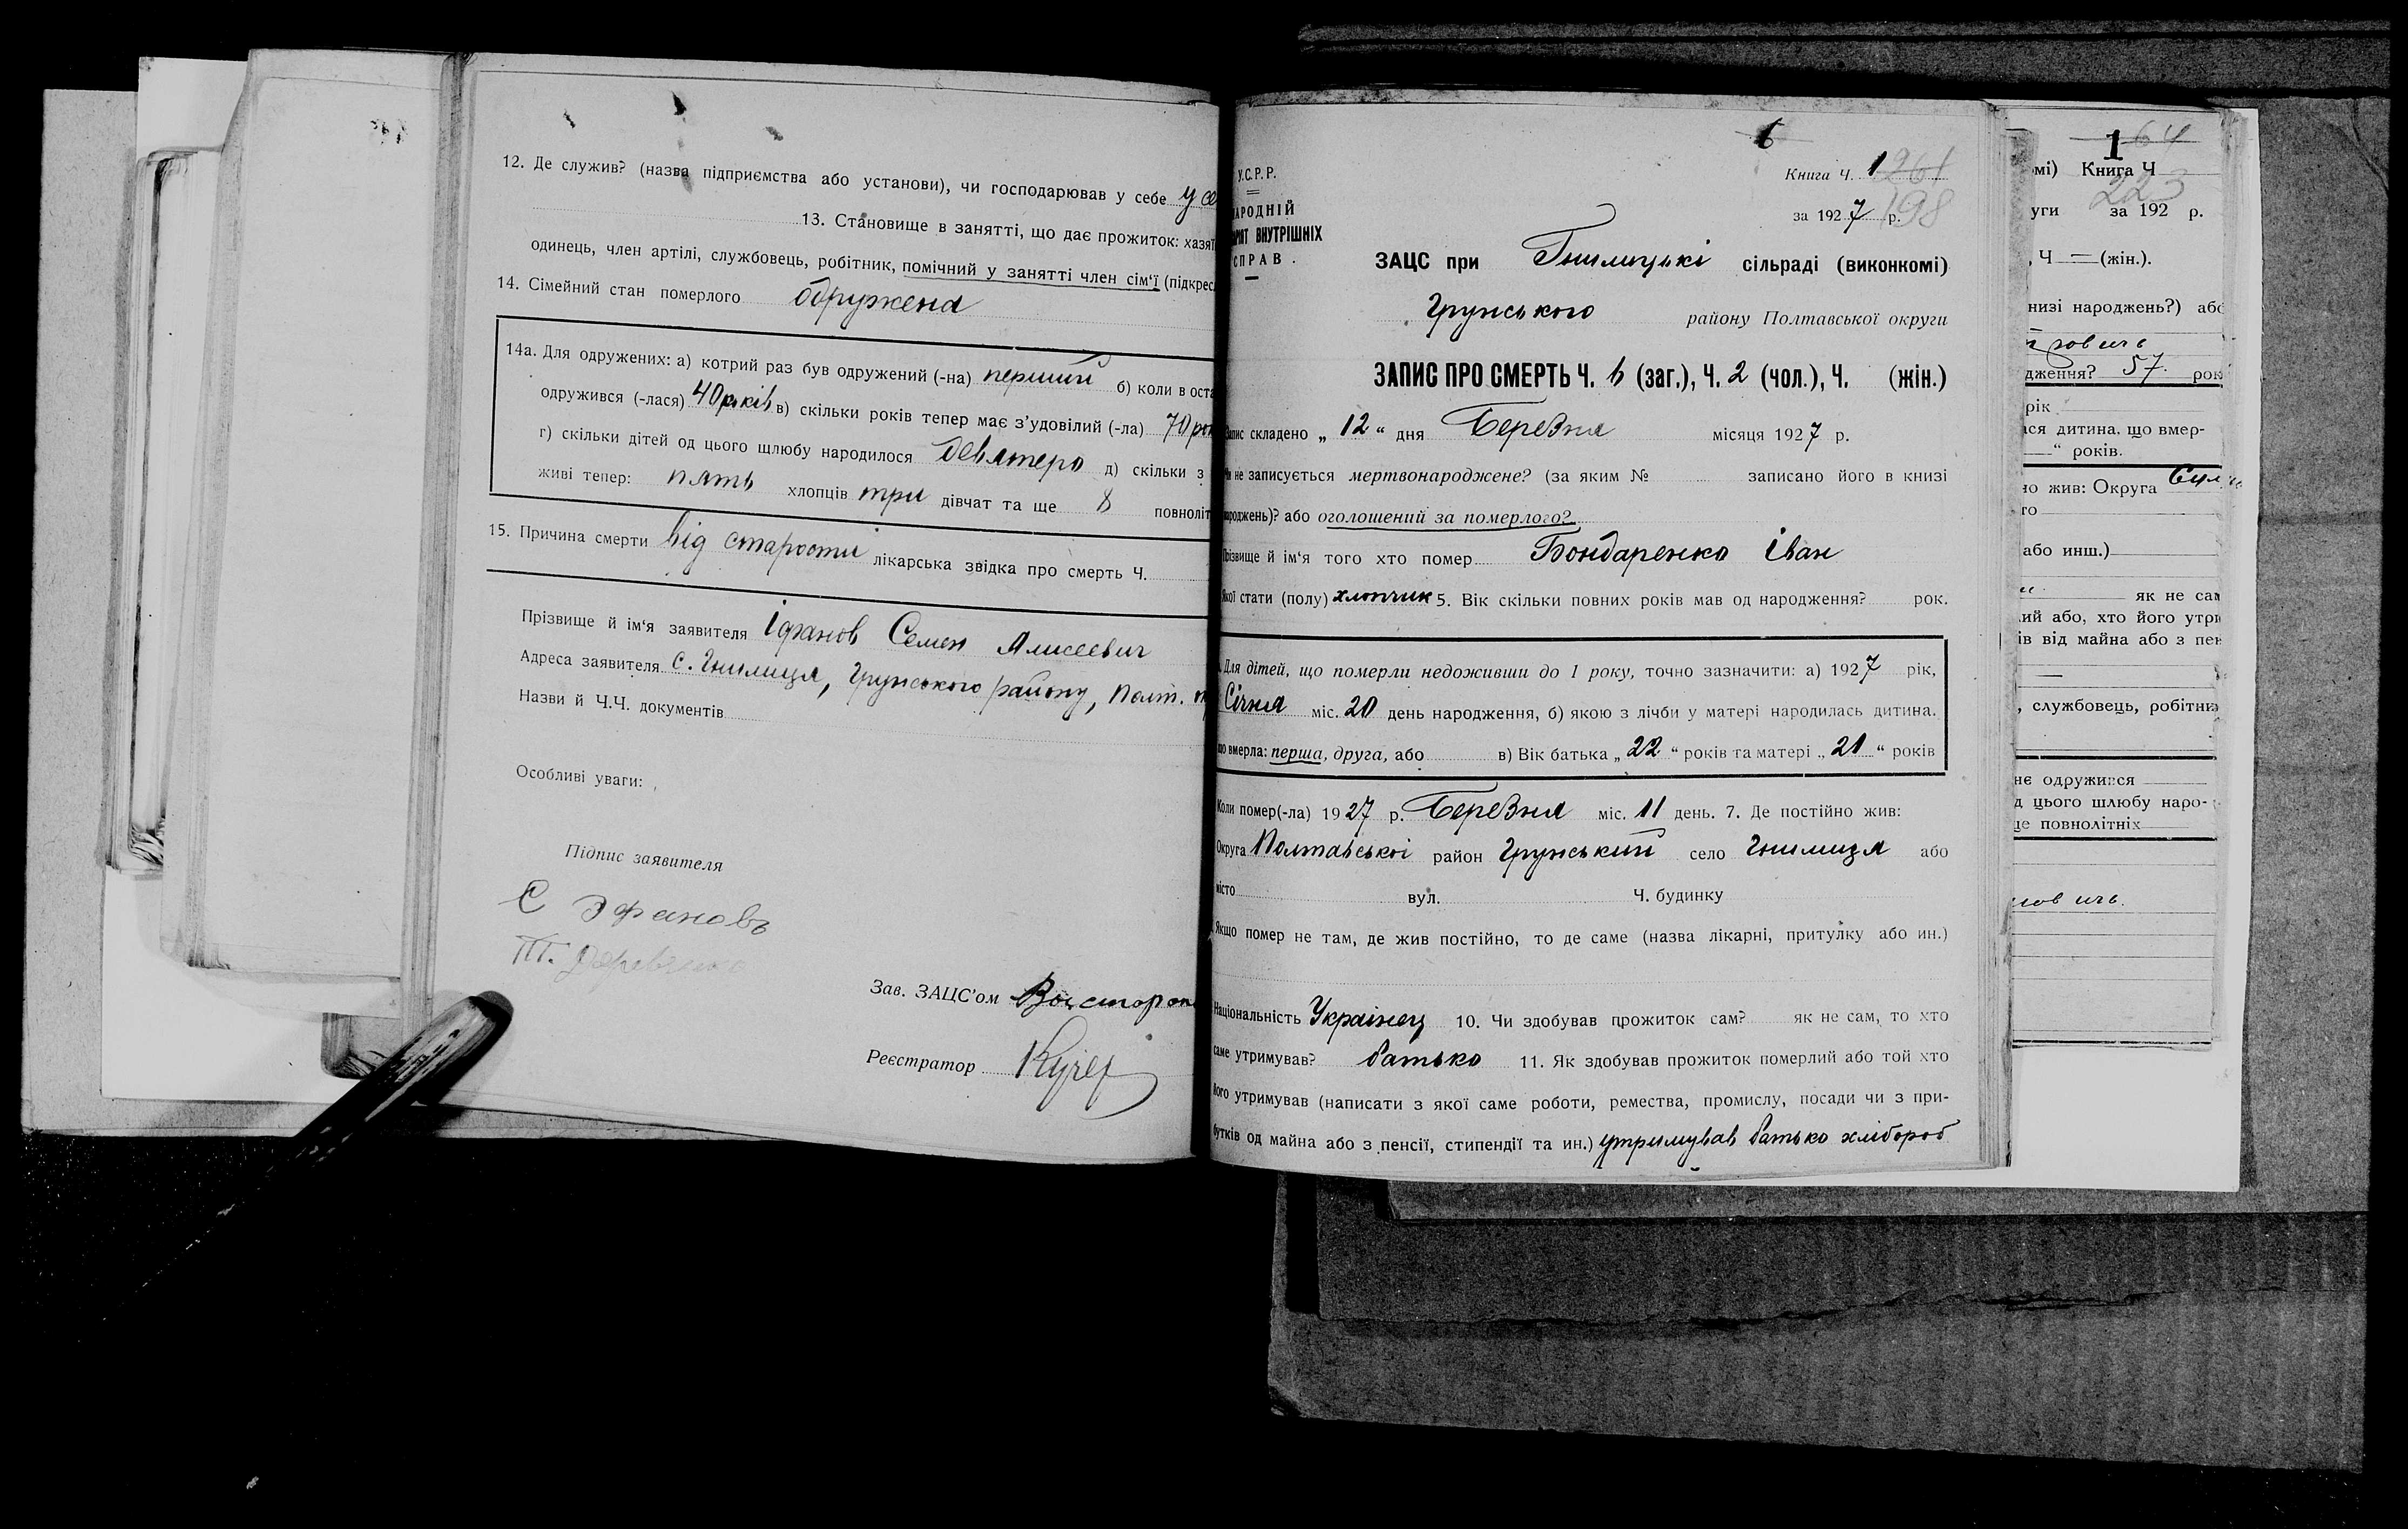 12. Де служив? (назва підприємства або установи), чи господарював у себе у се
13. Становище в занятті, що дає прожиток: хазяї
одинець, член артілі, службовець, робітник, помічний у занятті член сім'ї (підкрес
14. Сімейний стан померлого одружена
14а. Для одружених: а) котрий раз був одружений (-на) перший б) коли в оста
одружився (-лася) 40 років в) скільки років тепер має з'удовілий (-ла) 70 рок
г) скільки дітей од цього шлюбу народилося девятеро д) скільки з
живі тепер: пять хлопців три дівчат та ще 8 повноліт
15. Причина смерти від старости лікарська звідка про смерть Ч.
Прізвище й ім'я заявителя Іфанов Семен Алисеевич
Адреса заявителя с. Гнилиця, Грунського району, Полт. ок
Назви й Ч.Ч. документів
Особливі уваги:
Підпис заявителя
С Эфановъ
Зав. ЗАЦС'ом
Реєстратор Кучер
6
У.С.Р.Р.
АРОДНІЙ
РІЯТ ВНУТРІШНІХ
СПРАВ.
Книга Ч. 1 261
за 1927 р. 198
ЗАЦС при Гнилицькі сільраді (виконкомі)
Грунського району Полтавської округи
ЗАПИС ПРО СМЕРТЬ Ч. 6 (заг.), Ч. 2 (чол.), Ч. (жін.)
Запис складено „ 12 “ дня Березня місяця 1927 р.
Чи не записується мертвонароджене? (за яким № записано його в книзі
народжень)? або оголошений за померлого?
Прізвище й ім'я того хто помер Бондаренко Іван
Якої стати (полу) хлопчик 5. Вік скільки повних років мав од народження? рок.
Для дітей, що померли недоживши до 1 року, точно зазначити: а) 1927 рік,
Січня міс. 20 день народження, б) якою з лічби у матері народилась дитина.
що вмерла: перша, друга, або в) Вік батька „ 22 “ років та матері „ 21 “ років
Коли помер(-ла) 1927 р. Березня міс. 11 день. 7. Де постійно жив:
Округа Полтавської район Грунський село Гнилиця або
місто вул. Ч. будинку
Якщо помер не там, де жив постійно, то де саме (назва лікарні, притулку або ин.)
Національність Украінец 10. Чи здобував прожиток сам? як не сам, то хто
саме утримував? батько 11. Як здобував прожиток померлий або той хто
його утримував (написати з якої саме роботи, ремества, промислу, посади чи з при-
бутків од майна або з пенсії, стипендії та ин.) утримував батько хлібороб
1 64
омі) Книга Ч
223
уги за 192 р.
, Ч — (жін.).
низі народжень?) або
ровичъ
дження? 57 рок
рік
ася дитина, що вмер-
“ років.
но жив: Округа
го
або инш.)
як не сам
ий або, хто його утри
ів від майна або з пен
, службовець, робітник
нє одружився
д цього шлюбу наро-
ще повнолітніх